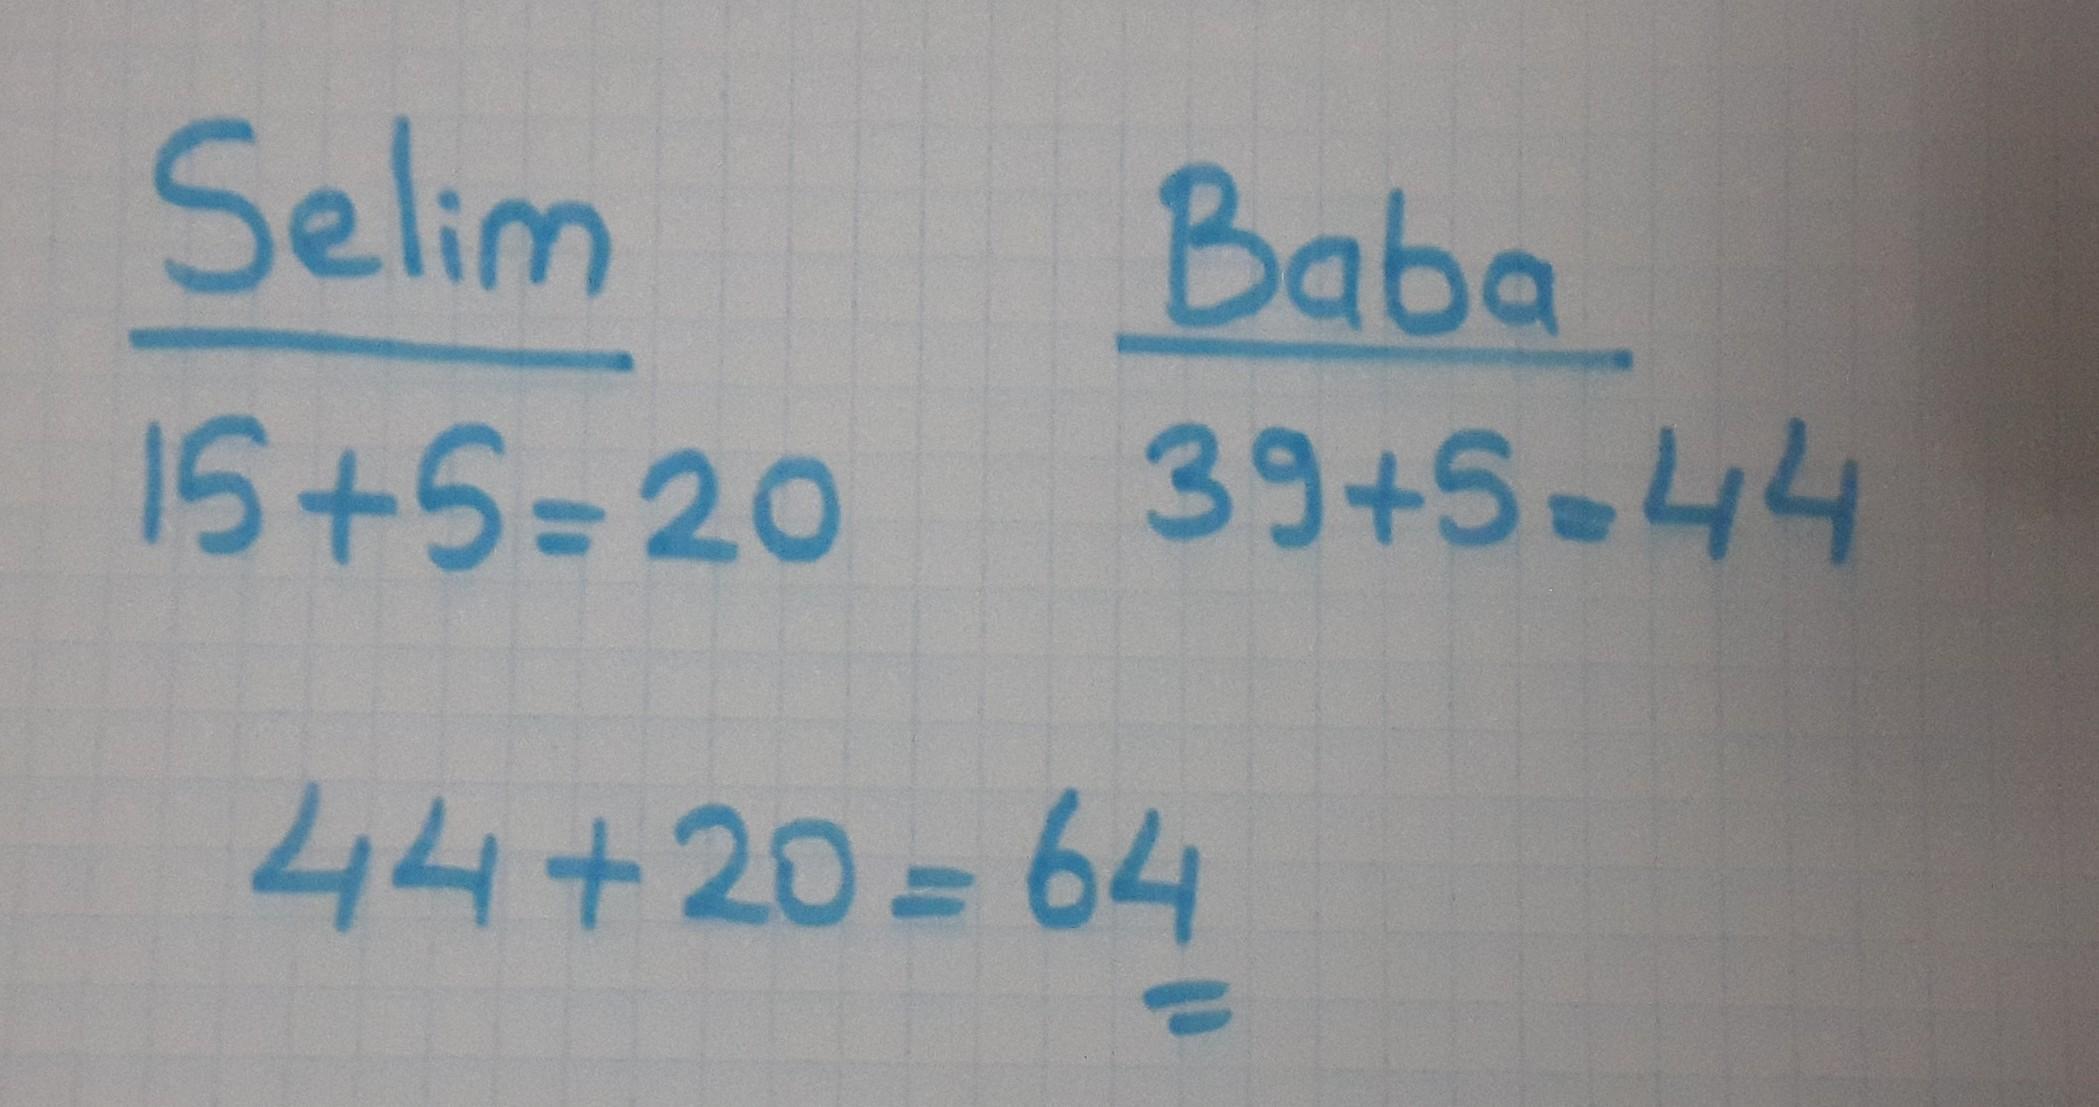 Selim Baba
15+5=20 39+5=44
44+20=64